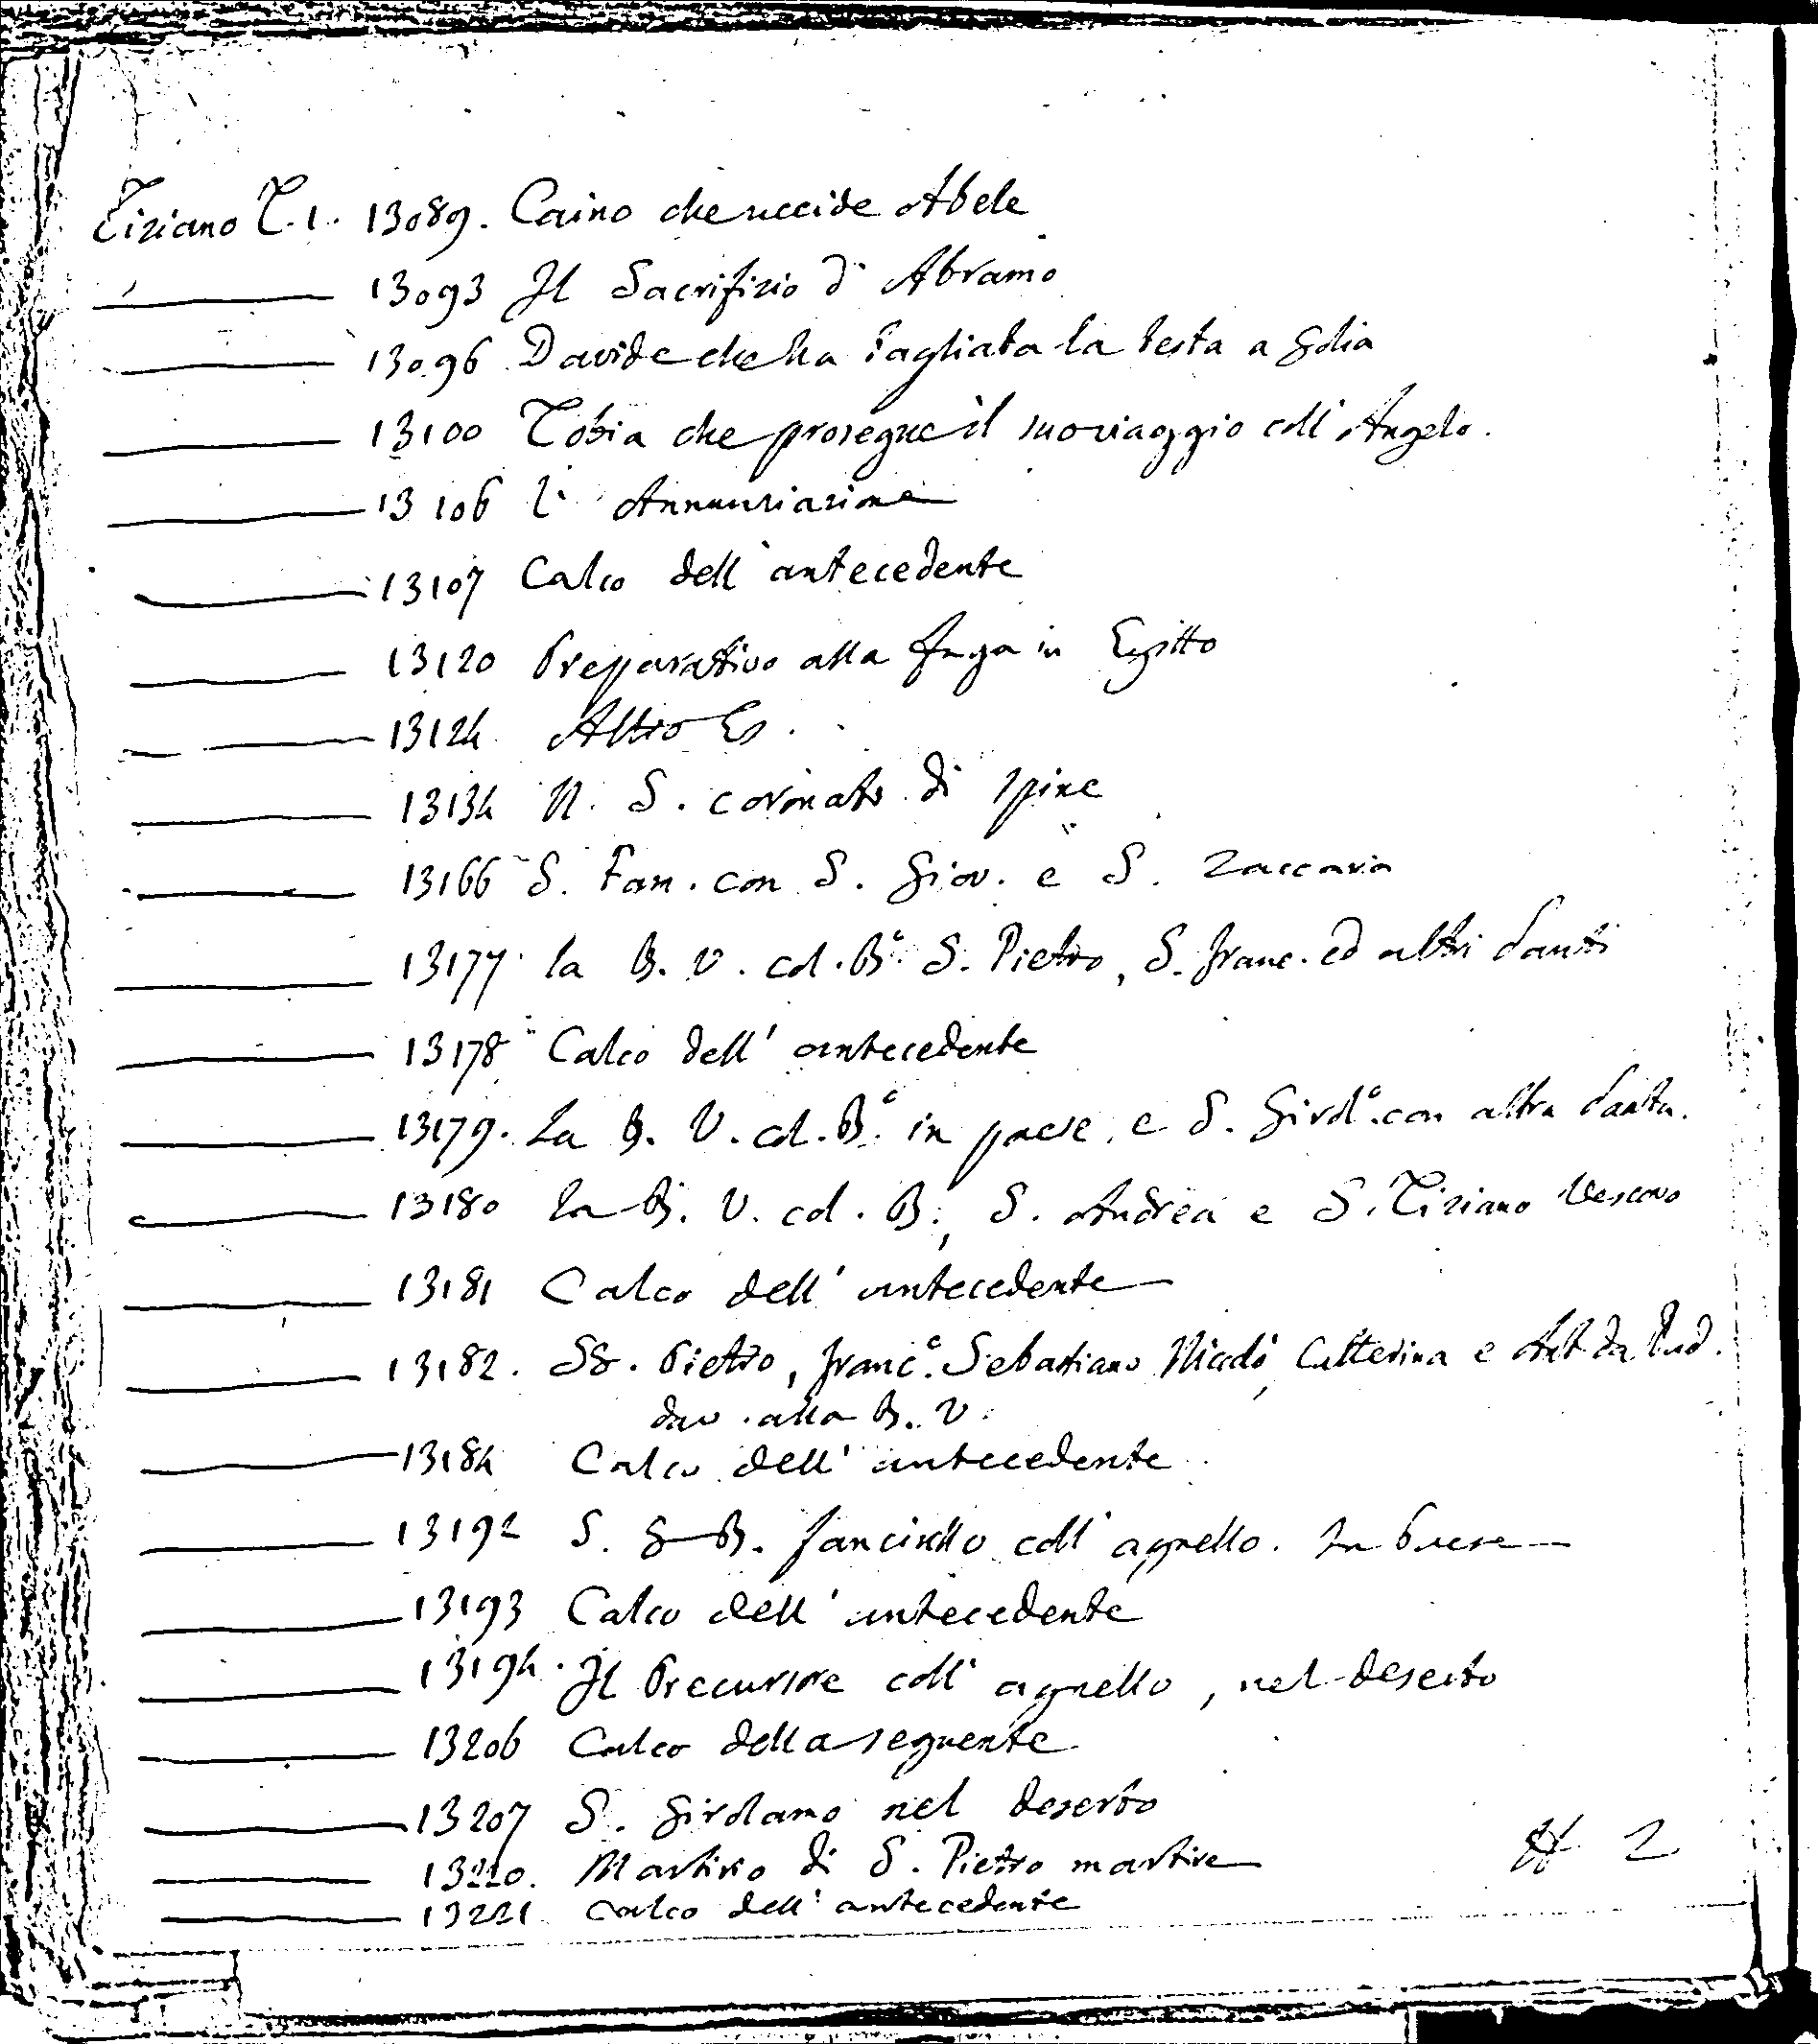 Tiziano T. 1. 13089. Caino che uccide Abele
13093 Il Sacrifizio d' Abramo
13096 Davide che ha tagliata la testa a Golia
13100 Tobia che prosegue il suo viaggio coll' Angelo.
13106 l' Annunziazione
13107 Calco dell' antecedente
13120 Preparativo alla fuga in Egitto
13124 Altro Es.
13134 N. S. coronato di spine
13166 S. Fam. con S. Giov. e S. Zaccaria
13177 la B. V. col. B.º S. Pietro, S. Franc. ed altri Santi
13178 Calco dell' antecedente
13179. La B. V. col. B.º in paese, e S. Girol.º con altra Santa.
13180 la B. V. col. B., S. Andrea e S. Tiziano Vescovo
13181 Calco dell' antecedente
13182. SS. Pietro, Franc.º Sebastiano Nicolò, Catterina e Ant. da Pad.
dav. alla B. V.
13184 Calco dell' antecedente
13192 S. G. B. fanciullo coll' agnello. In Paese
13193 Calco dell' antecedente
13194. Il Precursore coll' agnello, nel deserto
13206 Calco della seguente
13207 S. Girolamo nel deserto
13220. Martirio di S. Pietro martire
13221 Calco dell' antecedente
2